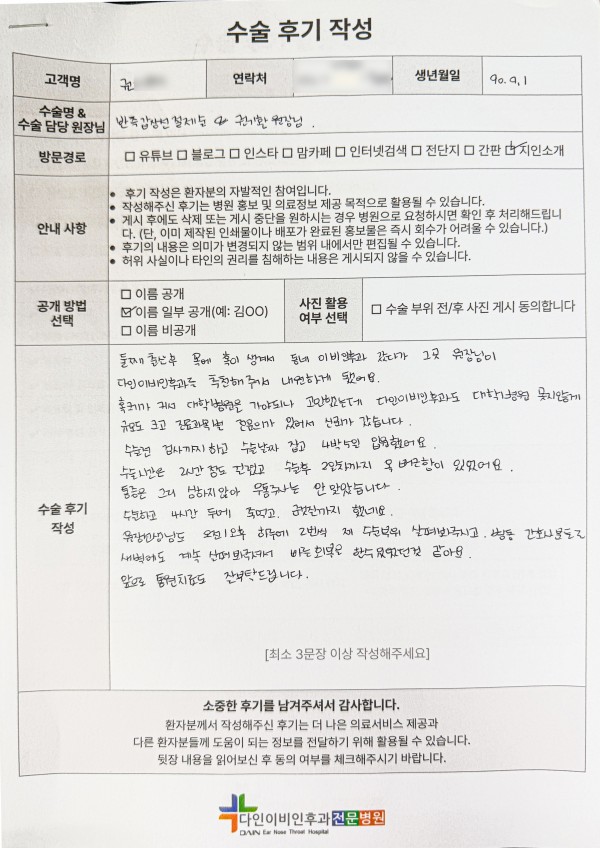 수술 후기 작성
고객명 권 연락처 생년월일 90. 9. 1
수술명 &
수술 담당 원장님
반측갑상선절제술 & 권기환 원장님.
방문경로 □ 유튜브 □ 블로그 □ 인스타 □ 맘카페 □ 인터넷검색 □ 전단지 □ 간판 ☑ 지인소개
안내 사항
● 후기 작성은 환자분의 자발적인 참여입니다.
● 작성해주신 후기는 병원 홍보 및 의료정보 제공 목적으로 활용될 수 있습니다.
● 게시 후에도 삭제 또는 게시 중단을 원하시는 경우 병원으로 요청하시면 확인 후 처리해드립니
다. (단, 이미 제작된 인쇄물이나 배포가 완료된 홍보물은 즉시 회수가 어려울 수 있습니다.)
● 후기의 내용은 의미가 변경되지 않는 범위 내에서만 편집될 수 있습니다.
● 허위 사실이나 타인의 권리를 침해하는 내용은 게시되지 않을 수 있습니다.
공개 방법
선택
□ 이름 공개
☑ 이름 일부 공개(예: 김OO)
□ 이름 비공개
사진 활용
여부 선택
□ 수술 부위 전/후 사진 게시 동의합니다
수술 후기
작성
둘째 출산후 목에 혹이 생겨서 동네 이비인후과 갔다가 그곳 원장님이
다인이비인후과를 추천해주셔서 내원하게 됐어요.
혹크기가 커서 대학병원을 가야되나 고민했는데 다인이비인후과도 대학병원 못지않게
규모도 크고 진료과목별 전문의가 있어서 신뢰가 갔습니다.
수술전 검사까지 하고 수술날짜 잡고 4박5일 입원했어요.
수술시간은 2시간 정도 걸렸고 수술후 2일차까지 목 뻐근함이 있었어요.
통증은 그리 심하지않아 무통주사는 안 맞았습니다.
수술하고 4시간 뒤에 죽먹고. 금방까지 했네요.
원장선생님도 오전/오후 하루에 2번씩 제 수술부위 살펴봐주시고. 병동 간호사분들도
새벽에도 계속 살펴봐주셔서 비는 한수 없었던것 같아요.
앞으로 통원치료도 잘부탁드립니다.
[최소 3문장 이상 작성해주세요]
소중한 후기를 남겨주셔서 감사합니다.
환자분께서 작성해주신 후기는 더 나은 의료서비스 제공과
다른 환자분들께 도움이 되는 정보를 전달하기 위해 활용될 수 있습니다.
뒷장 내용을 읽어보신 후 동의 여부를 체크해주시기 바랍니다.
다인이비인후과전문병원
DAIN Ear Nose Throat Hospital